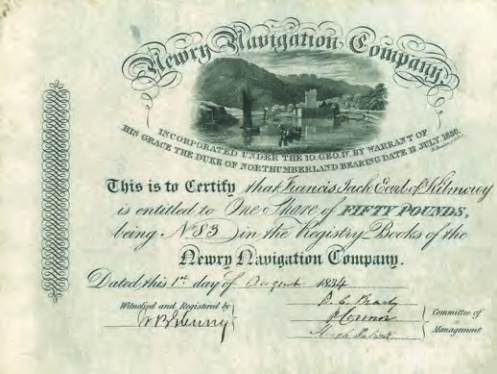 Newry Navigation Company.
INCORPORATED UNDER THE 10. GEO. IV. BY WARRANT OF
HIS GRACE THE DUKE OF NORTHUMBERLAND BEARING DATE 12 JULY 1830.
This is to Certify that Francis
is entitled to One Share of FIFTY POUNDS,
being No 83 in the Registry Books of the
Newry Navigation Company.
Dated this 1st day of August 1834
Witnessed and Registered by
Committee of
Management